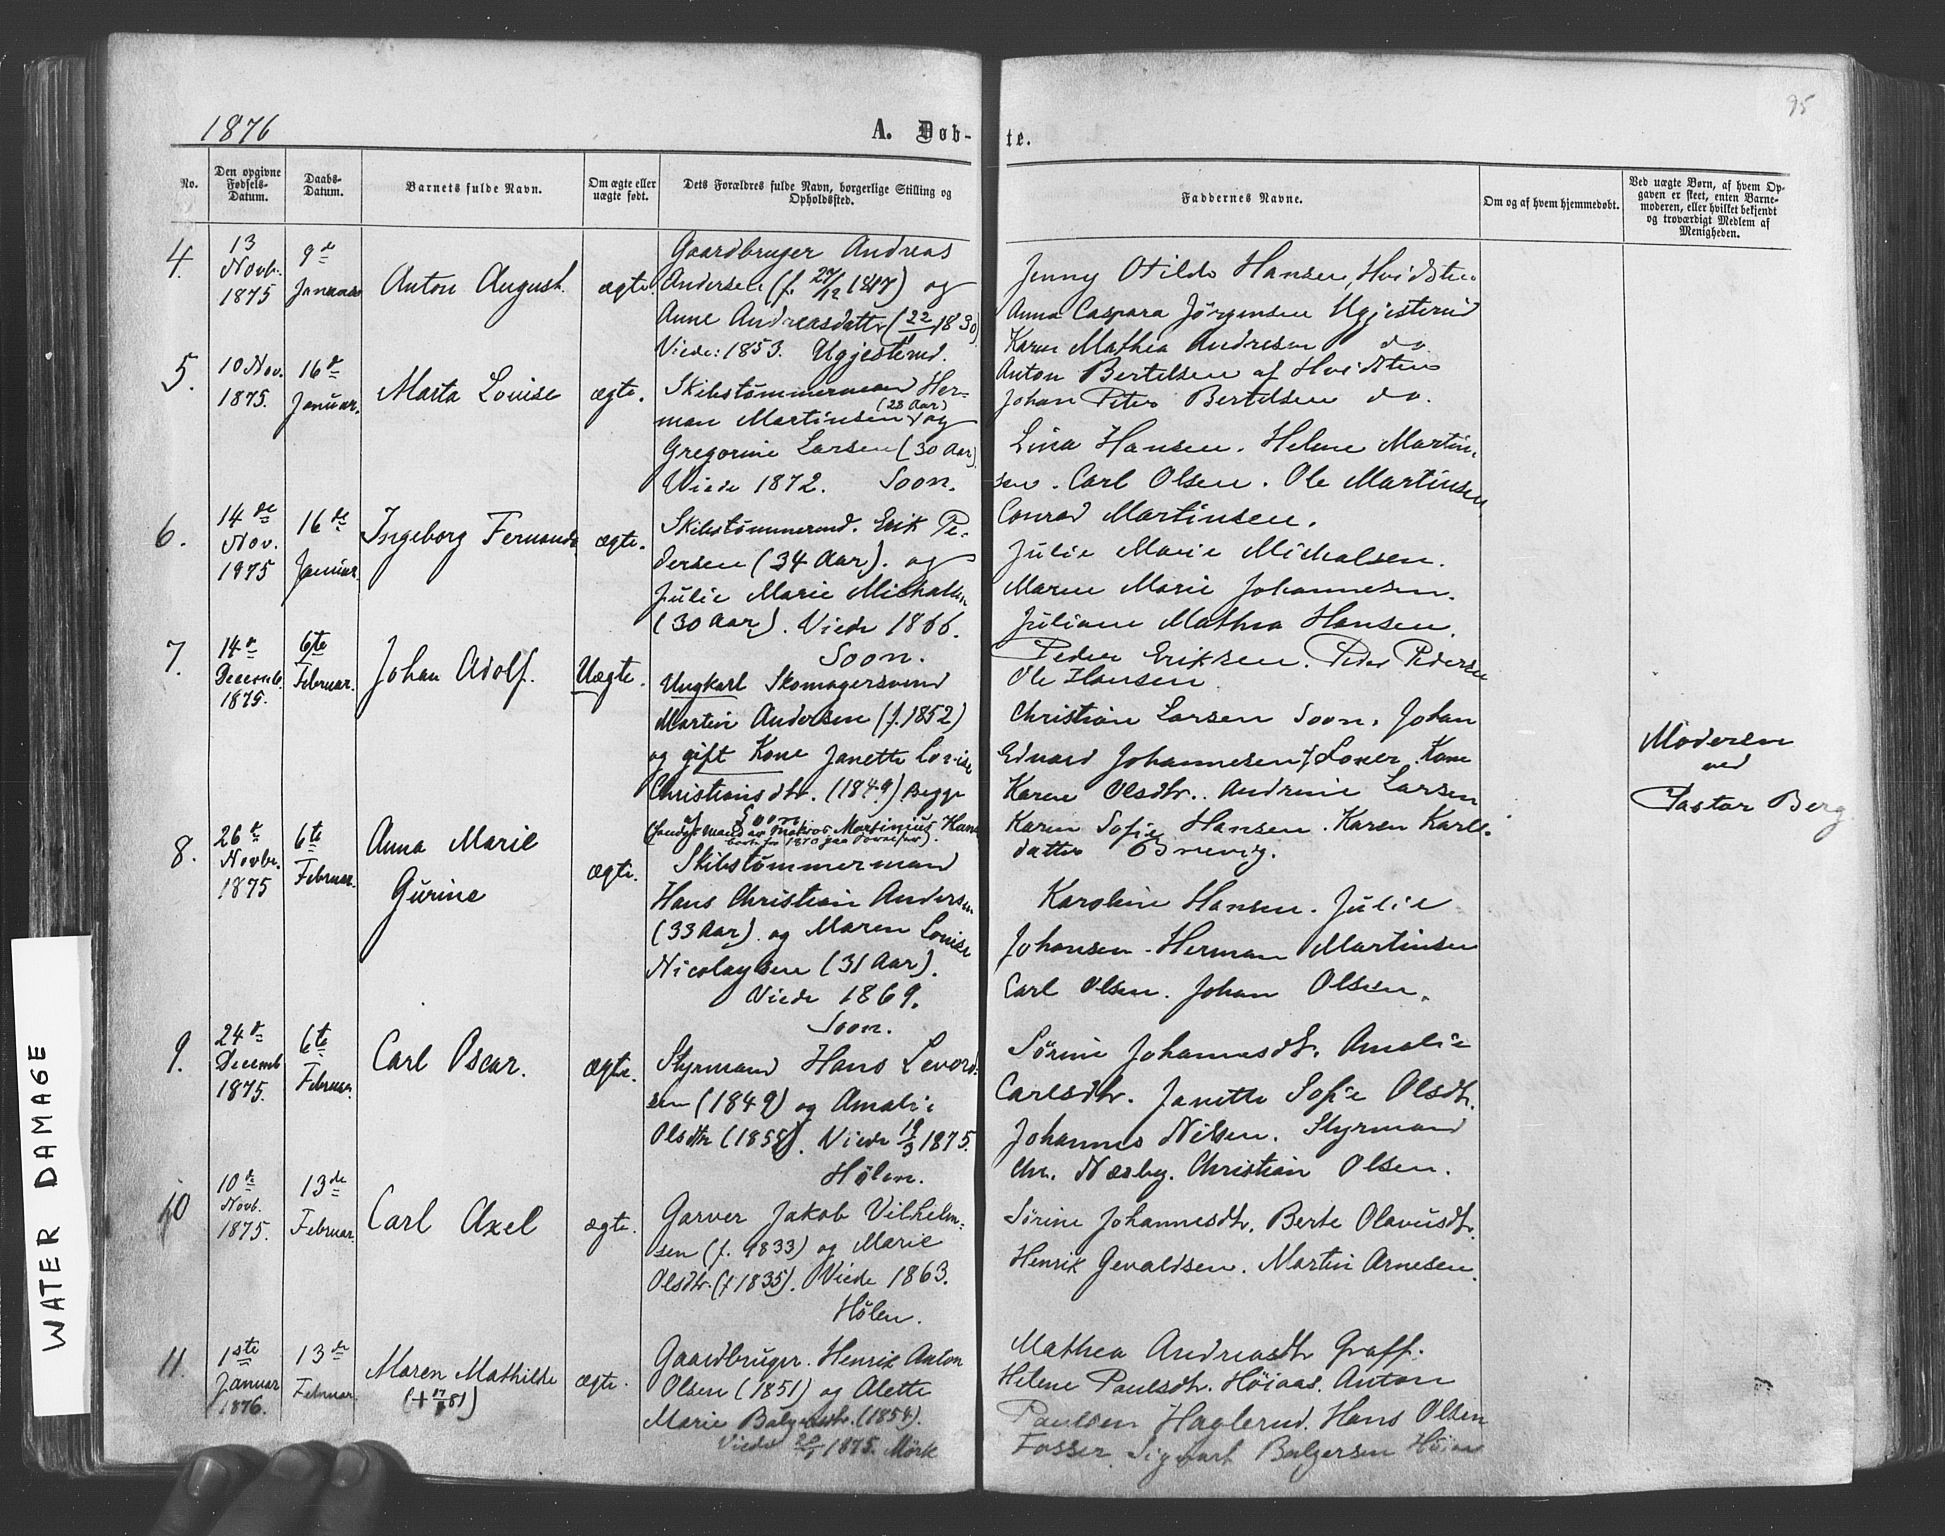 1876
A. Døb-
te.
95
No.
Den opgivne
Fødsels-
Datum.
Daabs-
Datum.
Barnets fulde Navn.
Om ægte eller
uægte født.
Dets Forældres fulde Navn, borgerlige Stilling og
Opholdssted.
Faddernes Navne.
Om og af hvem hjemmedøbt.
Ved uægte Børn, af hvem Op-
gaven er skeet, enten Barne-
moderen, eller hvilket bekjendt
og troværdigt Medlem af
Menigheden.
4.
13
Novb.
1875
9de
Januar
Anton August.
ægte.
Gaardbruger Andreas
Andersen (f. 27/12 1817) og
Anne Andreasdatter (22/ 1830)
Viede: 1853. Ugjesterud.
Jenny Otilde Hansen, Hvidsten
Anna Caspara Jørgensen Ugjesterud
Karen Mathea Andresen do
Anton Bertelsen af Hvidsten
Johan Peter Bertelsen do.
5.
10 Nov.
1875.
16de
Januar.
Marta Louise
ægte.
Skibstømmermand Her-
man Martinsen (28 Aar) og
Gregorine Larsen (30 Aar)
Viede 1872. Soon.
Lina Hansen. Helene Martin-
sen. Carl Olsen. Ole Martinsen
Conrad Martinsen.
6.
14de
Nov.
1975
16de
Januar.
Ingeborg Fernanda
ægte.
Skibstømmermd. Erik Pe-
dersen (34 Aar). og
Julie Marie Michalsen
(30 Aar). Viede 1866.
Soon.
Julie Marie Michalsen.
Maren Marie Johannesen.
Juliane Mathea Hansen.
Peder Eriksen. Peder Pedersen
Ole Hansen
7.
14de
Decemb.
1875.
6te
Februar.
Johan Adolf.
Uægte.
Ungkarl Skomagersvend
Martin Andersen (f. 1852)
og gift Kone Janette Lovise
Christiansdtr. (1849) Begge
af Soon
Christian Larsen Soon. Johan
Eduard Johannesen, Loser. Kone
Karen Olsdtr. Andrine Larsen
Karen Sofie Hansen. Karen Karls-
datter Brevig.
Moderen
ved
Pastor Berg
8.
26de
Novbr.
1875
6te
Februar.
Anna Marie
Gurine
ægte.
Skibstømmermand
Hans Christian Andersen
(33 Aar). og Maren Louise
Nicolaysen (31 Aar).
Viede 1869.
Soon.
Karoline Hansen. Julie
Johansen. Herman Martinsen
Carl Olsen. Johan Olsen.
9.
24de
Decemb
1875.
6te
Februar.
Carl Oscar.
ægte.
Styrmand Hans Levord-
sen (1849) og Amalie
Olsdtr (1858). Viede 19/3 1875.
Hølen.
Sørine Johannesdtr. Amalie
Carlsdtr. Janette Sofie Olsdtr.
Johannes Nilsen. Styrmand
Chr. Næsby. Christian Olsen.
10
10de
Novb.
1875.
13de
Februar.
Carl Axel
ægte.
Garver Jakob Vilhelm-
sen (f. 1833) og Marie
Olsdtr. (f 1835). Viede 1863.
Hølen.
Sørine Johannesdtr. Berte Olavusdtr.
Henrik Gevaldsen. Martin Arnesen.
11.
1ste
Januar
1876.
13de
Februar.
Maren Mathilde
ægte.
Gaardbruger. Henrik Anton
Olsen (1851) og Alette
Marie Bølgersdtr. (1854).
Viede 1875. Mørk
Mathea Andreasdtr Graff.
Helene Paulsdtr. Høiaas. Anton
Paulsen Haglerud. Hans Olsen
Fosser. Sigvart Bølgersen Høiaas
WATER DAMAGE